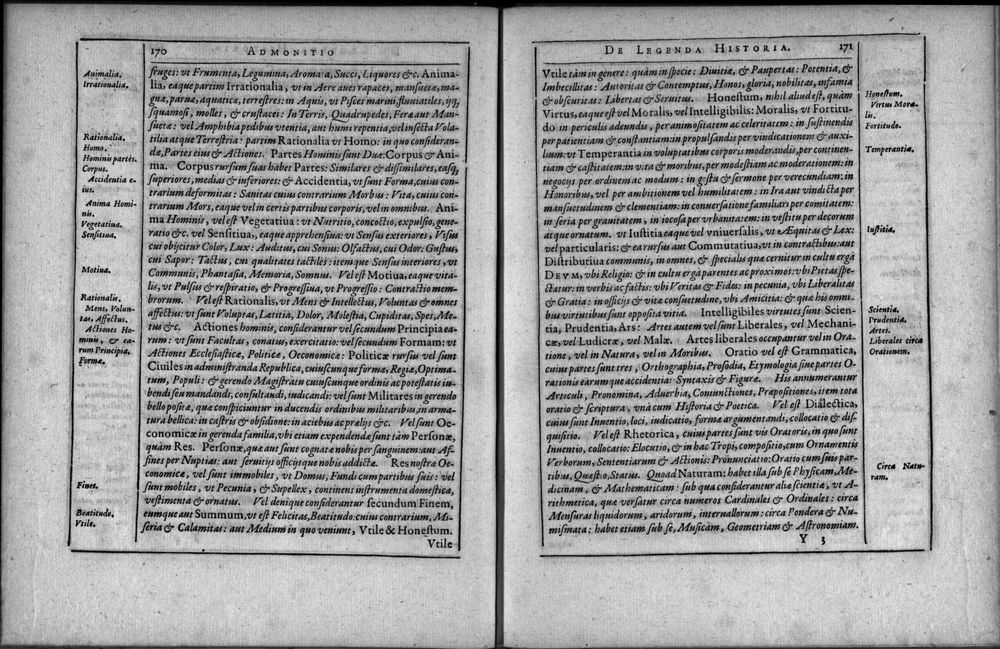 170 ADMONITIO
Animalia.
Irrationalia.
Rationalia.
Homo.
Hominis partes.
Corpus.
Accidentia e-
ius.
Anima Homi-
nis.
Vegetatiua.
Sensitiua.
Motiua.
Rationalis.
Mens, Volun-
tas, Affectus.
Actiones Ho-
minis, & ea-
rum Principia.
Formæ.
Fines.
Beatitudo.
Vtile.
fruges: vt Frumenta, Legumina, Aromata, Succi, Liquores &c. Anima-
lia, eaque partim Irrationalia, vt in Aere aues rapaces, mansuetæ, mag-
næ, paruæ, aquaticæ, terrestres: in Aquis, vt Pisces marini, fluuiatiles, ijq,
squamosi, molles, & crustacei: In Terris, Quadrupedes, Feræ aut Man-
suetæ: vel Amphibia pedibus vtentia, aut humi repentia, vel insecta Vola-
tilia atque Terrestria: partim Rationalia vt Homo: in quo consideran-
dæ, Partes eius & Actiones. Partes Hominis sunt Duæ: Corpus & Ani-
ma. Corpus rursum suas habet Partes: Similares & dissimilares, easq,
superiores, medias & inferiores: & Accidentia, vt sunt Forma, cuius con-
trarium deformitas: Sanitas cuius contrarium Morbus: Vita, cuius con-
trarium Mors, eaque vel in certis partibus corporis, vel in omnibus. Ani-
ma Hominis, vel est Vegetatiua: vt Nutritio, concoctio, expulsio, gene-
ratio &c. vel Sensitiua, eaque apprehensiua: vt Sensus exteriores, Visus
cui obijcitur Color, Lux: Auditus, cui Sonus: Olfactus, cui Odor: Gustus,
cui Sapor: Tactus, cui qualitates tactiles: itemque Sensus interiores, vt
Communis, Phantasia, Memoria, Somnus. Vel est Motiua, eaque vita-
lis, vt Pulsus & respiratio, & Progressiua, vt Progressio: Contractio mem-
brorum. Vel est Rationalis, vt Mens & Intellectus, Voluntas & omnes
affectus: vt sunt Voluptas, Lætitia, Dolor, Molestia, Cupiditas, Spes, Me-
tus &c. Actiones hominis, considerantur vel secundum Principia ea-
rum: vt sunt Facultas, conatus, exercitatio: vel secundum Formam: vt
Actiones Ecclesiasticæ, Politicæ, Oeconomicæ: Politicæ rursus vel sunt
Ciuiles in administranda Republica, cuiuscunque formæ, Regiæ, Optima-
tum, Populi: & gerendo Magistratu cuiuscunque ordinis ac potestatis iu-
bendi seu mandandi, consultandi, iudicandi: vel sunt Militares in gerendo
bello positæ, quæ conspiciuntur in ducendis ordinibus militaribus, in arma-
tura bellica: in castris & obsidione: in aciebus ac prælijs &c. Vel sunt Oe-
conomicæ in gerenda familia, vbi etiam expendendæ sunt tàm Personæ,
quàm Res. Personæ, quæ aut sunt cognatæ nobis per sanguinem: aut Af-
fines per Nuptias: aut seruitijs officijsque nobis addictæ. Res nostræ Oe-
conomicæ, vel sunt immobiles, vt Domus, Fundi cum partibus suis: vel
sunt mobiles, vt Pecunia, & Supellex, continens instrumenta domestica,
vestimenta & ornatus. Vel denique considerantur secundum Finem,
eumque aut Summum, vt est Felicitas, Beatitudo: cuius contrarium, Mi-
seria & Calamitas: aut Medium in quo veniunt, Vtile & Honestum.
Vtile
DE LEGENDA HISTORIA. 171
Vtile tàm in genere: quàm in specie: Diuitiæ, & Paupertas: Potentia, &
Imbecillitas: Autoritas & Contemptus, Honos, gloria, nobilitas, infamia
& obscuritas: Libertas & Seruitus. Honestum, nihil aliud est, quàm
Virtus, eaque est vel Moralis, vel Intelligibilis: Moralis, vt Fortitu-
do in periculis adeundis, per animositatem ac celeritatem: in sustinendis
per patientiam & constantiam: in propulsandis per vindicationem & auxi-
lium: vt Temperantia in voluptatibus corporis moderandis, per continen-
tiam & castitatem: in vita & moribus, per modestiam ac moderationem: in
negocijs per ordinem ac modum: in gestu & sermone per verecundiam: in
Honoribus, vel per ambitionem vel humilitatem: in Ira aut vindicta per
mansuetudinem & clementiam: in conuersatione familiari per comitatem:
in seria per grauitatem, in iocosa per vrbanitatem: in vestitu per decorum
atque ornatum. vt Iustitia eaque vel vniuersalis, vt Æquitas & Lex:
vel particularis: & ea rursus aut Commutatiua, vt in contractibus: aut
Distributiua communis, in omnes, & specialis quæ cernitur in cultu ergà
DEVM, vbi Religio: & in cultu ergà parentes ac proximos: vbi Pietas spe-
ctatur: in verbis ac factis: vbi Veritas & Fides: in pecunia, vbi Liberalitas
& Gratia: in officijs & vitæ consuetudine, vbi Amicitia: & quæ his omni-
bus virtutibus sunt opposita vitia. Intelligibiles virtutes sunt Scien-
tia, Prudentia, Ars: Artes autem vel sunt Liberales, vel Mechani-
cæ, vel Ludicræ, vel Malæ. Artes liberales occupantur vel in Ora-
tione, vel in Natura, vel in Moribus. Oratio vel est Grammatica,
cuius partes sunt tres, Orthographia, Prosodia, Etymologia siue partes O-
rationis earumque accidentia: Syntaxis & Figuræ. His annumerantur
Articuli, Pronomina, Aduerbia, Coniunctiones, Præpositiones, item tota
oratio & scriptura, vnà cum Historia & Poetica. Vel est Dialectica,
cuius sunt Inuentio, loci, iudicatio, formæ argumentandi, collocatio & dis-
quisitio. Vel est Rhetorica, cuius partes sunt vis Oratoris, in quo sunt
Inuentio, collocatio: Elocutio, & in hac Tropi, compositio, cum Ornamentis
Verborum, Sententiarum & Actionis: Pronunciatio: Oratio cum suis par-
tibus, Quæstio, Status. Quoad Naturam: habet illa sub se Physicam, Me-
dicinam, & Mathematicam: sub qua considerantur aliæ scientiæ, vt A-
rithmetica, quæ versatur circa numeros Cardinales & Ordinales: circa
Mensuras liquidorum, aridorum, interuallorum: circa Pondera & Nu-
mismata: habet etiam sub se, Musicam, Geometriam & Astronomiam.
Y 3
Honestum.
Virtus Mora-
lis.
Fortitudo.
Temperantia.
Iustitia.
Scientia.
Prudentia.
Artes.
Liberales circa
Orationem.
Circa Natu-
ram.